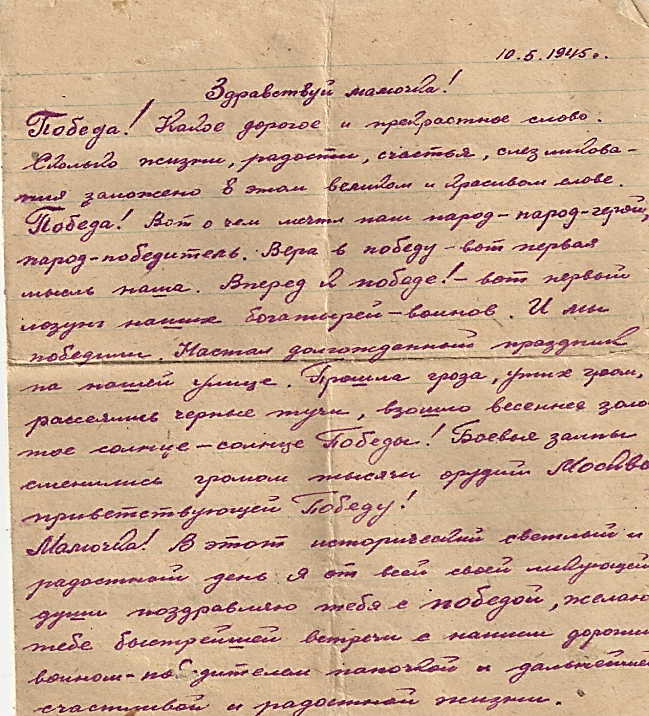 10.5.1945г.
Здравствуй мамочка!
Победа! Какое дорогое и прекрастное слово.
Сколько жизни, радости, счастья, слез ликова-
ния заложено в этом великом и красивом слове.
Победа! Вот о чем мечтал наш народ-народ-герой,
народ-победитель. Вера в победу-вот первая
мысль наша. Вперед к победе!-вот первый
лозунг наших богатырей-воинов. И мы
победили. Настал долгожданный праздник
на нашей улице. Прошла гроза, утих гром,
рассеялись черные тучи, взошло весеннее золо-
тое солнце-солнце Победы! Боевые залпы
сменились громом тысячи орудий Москвы
приветствующей Победу!
Мамочка! В этот исторический светлый и
радостный день я от всей своей ликующей
души поздравляю тебя с победой, желаю
тебе быстрейшей встречи с нашим дорогим
воином-победителем папочкой и дальнейшей
счастливой и радостной жизни.